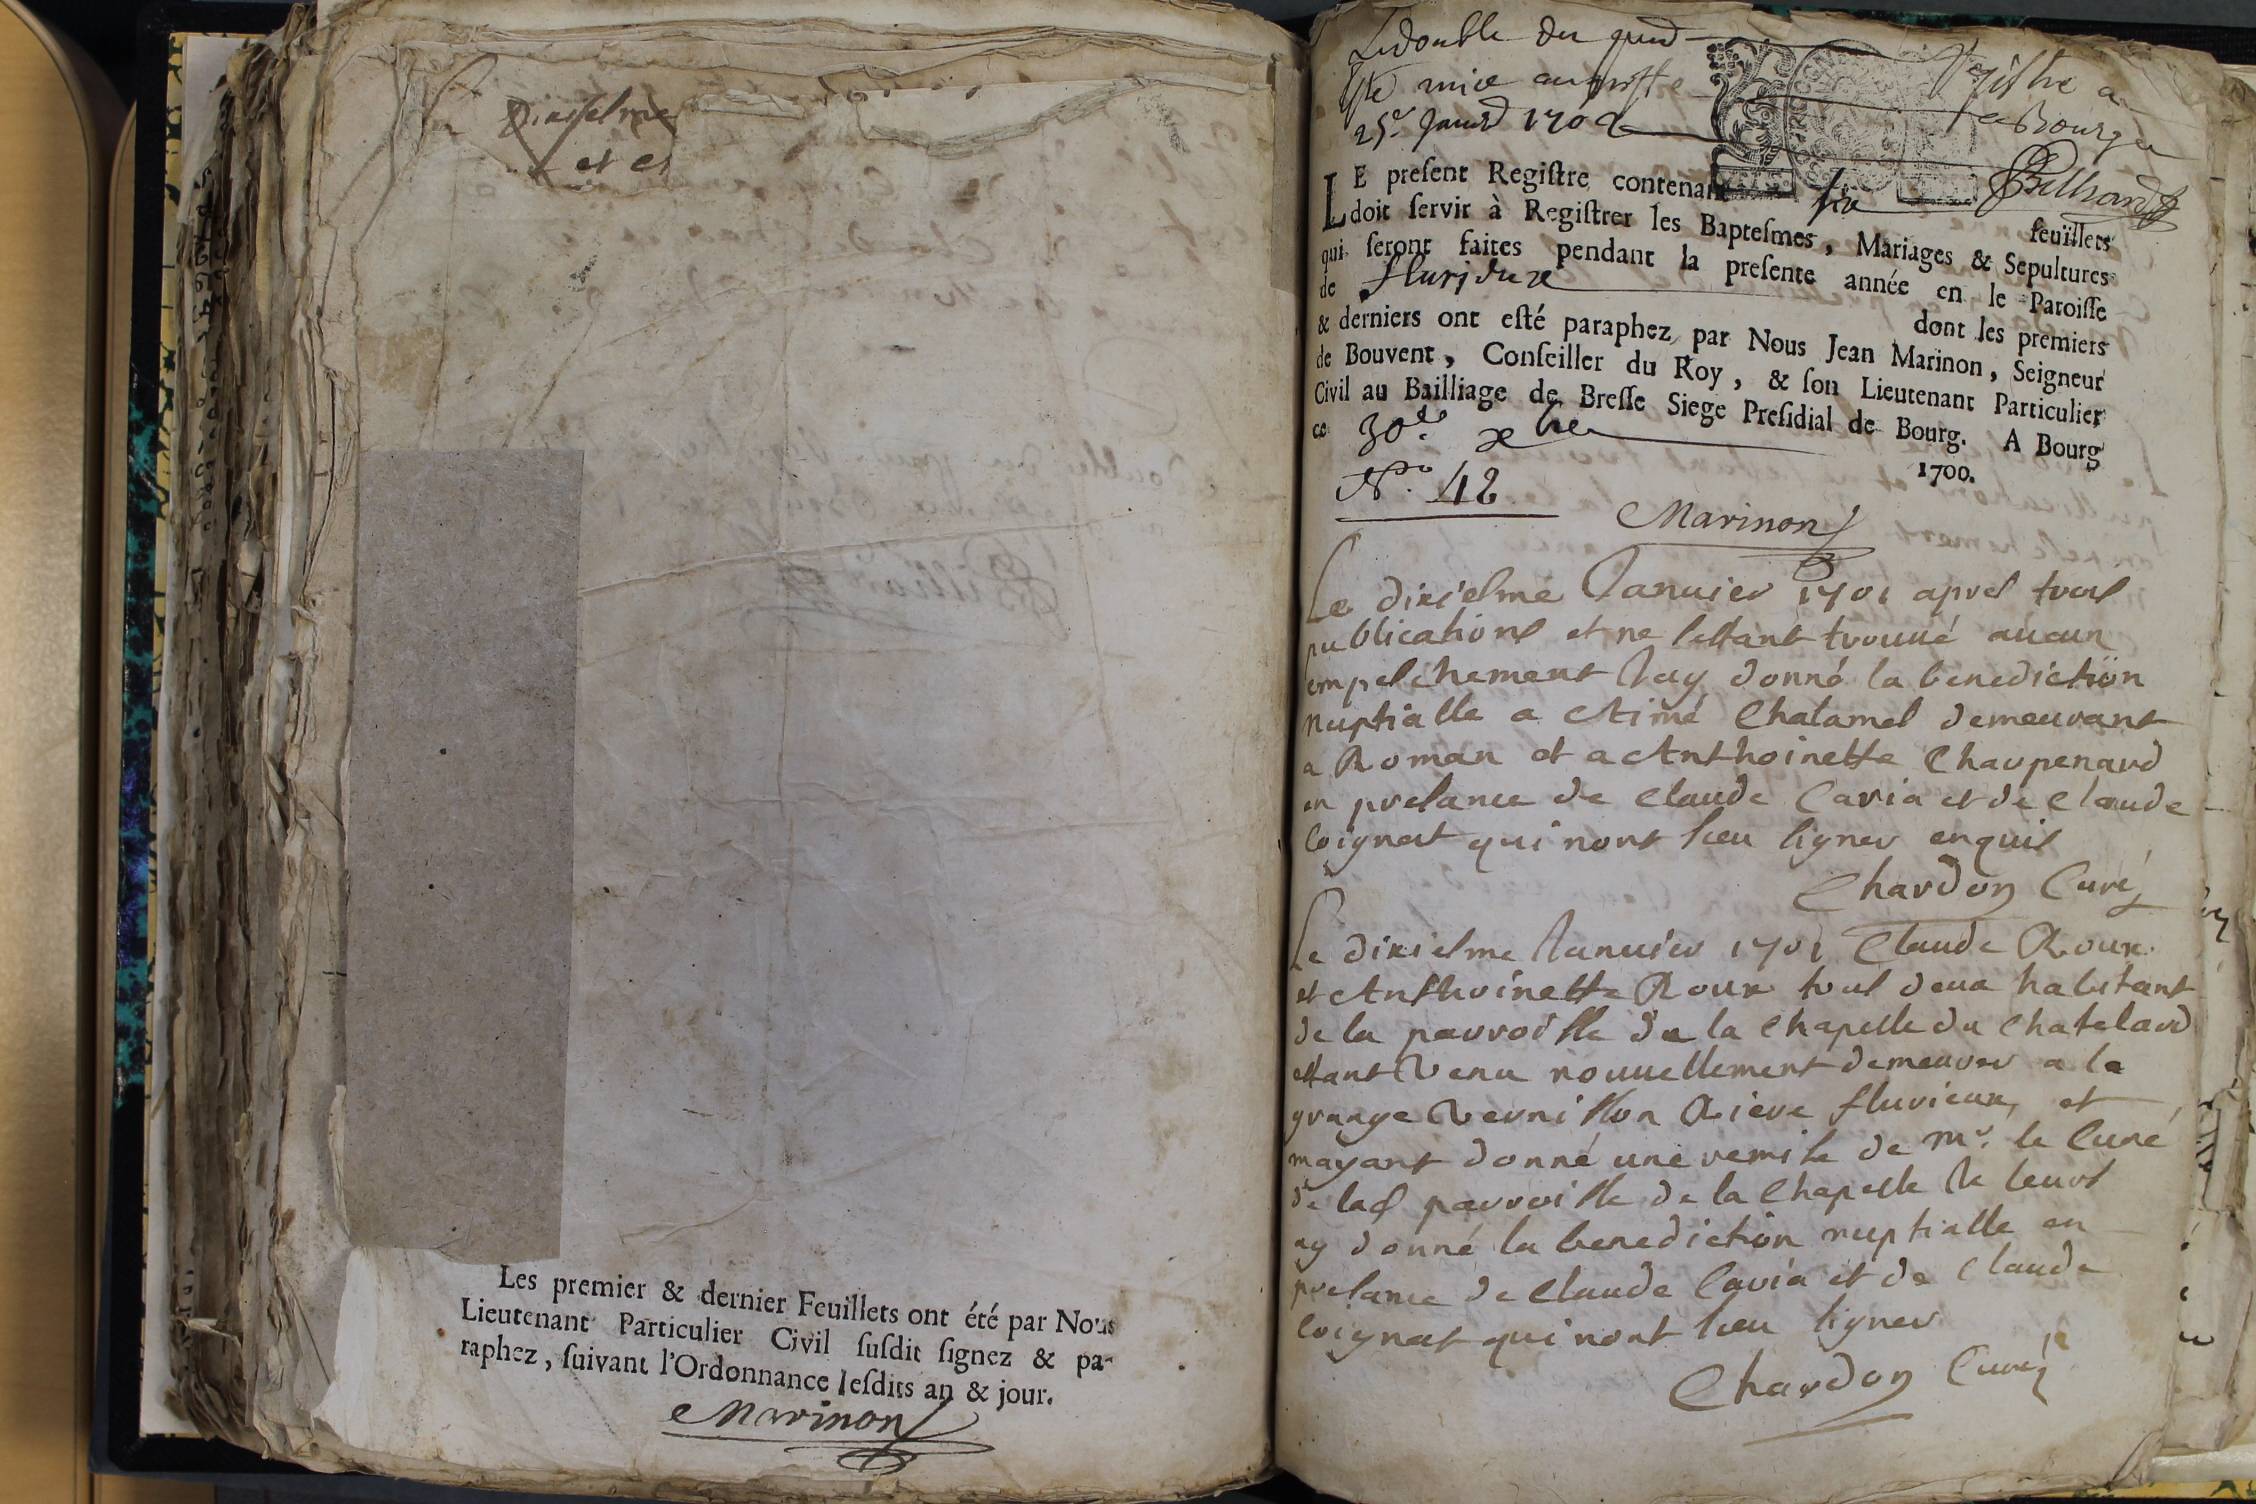 et et
Les premier & dernier Feuillets ont été par Nous
Lieutenant Particulier Civil ſuſdit ſignez & pa-
raphez, ſuivant l'Ordonnance leſdits an & jour.
Marinon
Ledouble du
Regiſtre a
eſté mis au greffe
Bourg
25e Janvr 1702
Billiard
LE preſent Regiſtre contenant six feuïllets
doit ſervir à Regiſtrer les Bapteſmes, Mariages & Sepultures
qui ſeront faites pendant la preſente année en le Paroiſſe
de fluridux dont les premiers
& derniers ont eſté paraphez par Nous Jean Marinon, Seigneur
de Bouvent, Conſeiller du Roy, & ſon Lieutenant Particulier
Civil au Bailliage de Breſſe Siege Preſidial de Bourg. A Bourg
ce 30e xbre 1700.
No. 42
Marinon
Le dixiesme Januier 1701 apres trois
publications et ne sestant trouué aucun
empeschement Jay donné la benediction
nuptialle a Aimé Chatamel demeurant
a Roman et a Anthoinette Charpenard
en presance de Claude Caria et de Claude
Coignat qui nont sceu signer enquis
Chardon Curé
Le dixiesme Januier 1701 Claude Roux
et Anthoinette Roux tous deux habitant
de la parroisse de la Chapelle du Chatelard
estant venu nouuellement demeurer a la
grange Vernisson Riere flurieux, et
mayant donné une remise de Mr. le Curé
de lad parroisse de la Chapelle Je leurs
ay donné la benediction nuptialle en
presance de Claude Caria et de Claude
Coignat qui nont sceu signer
Chardon Curé